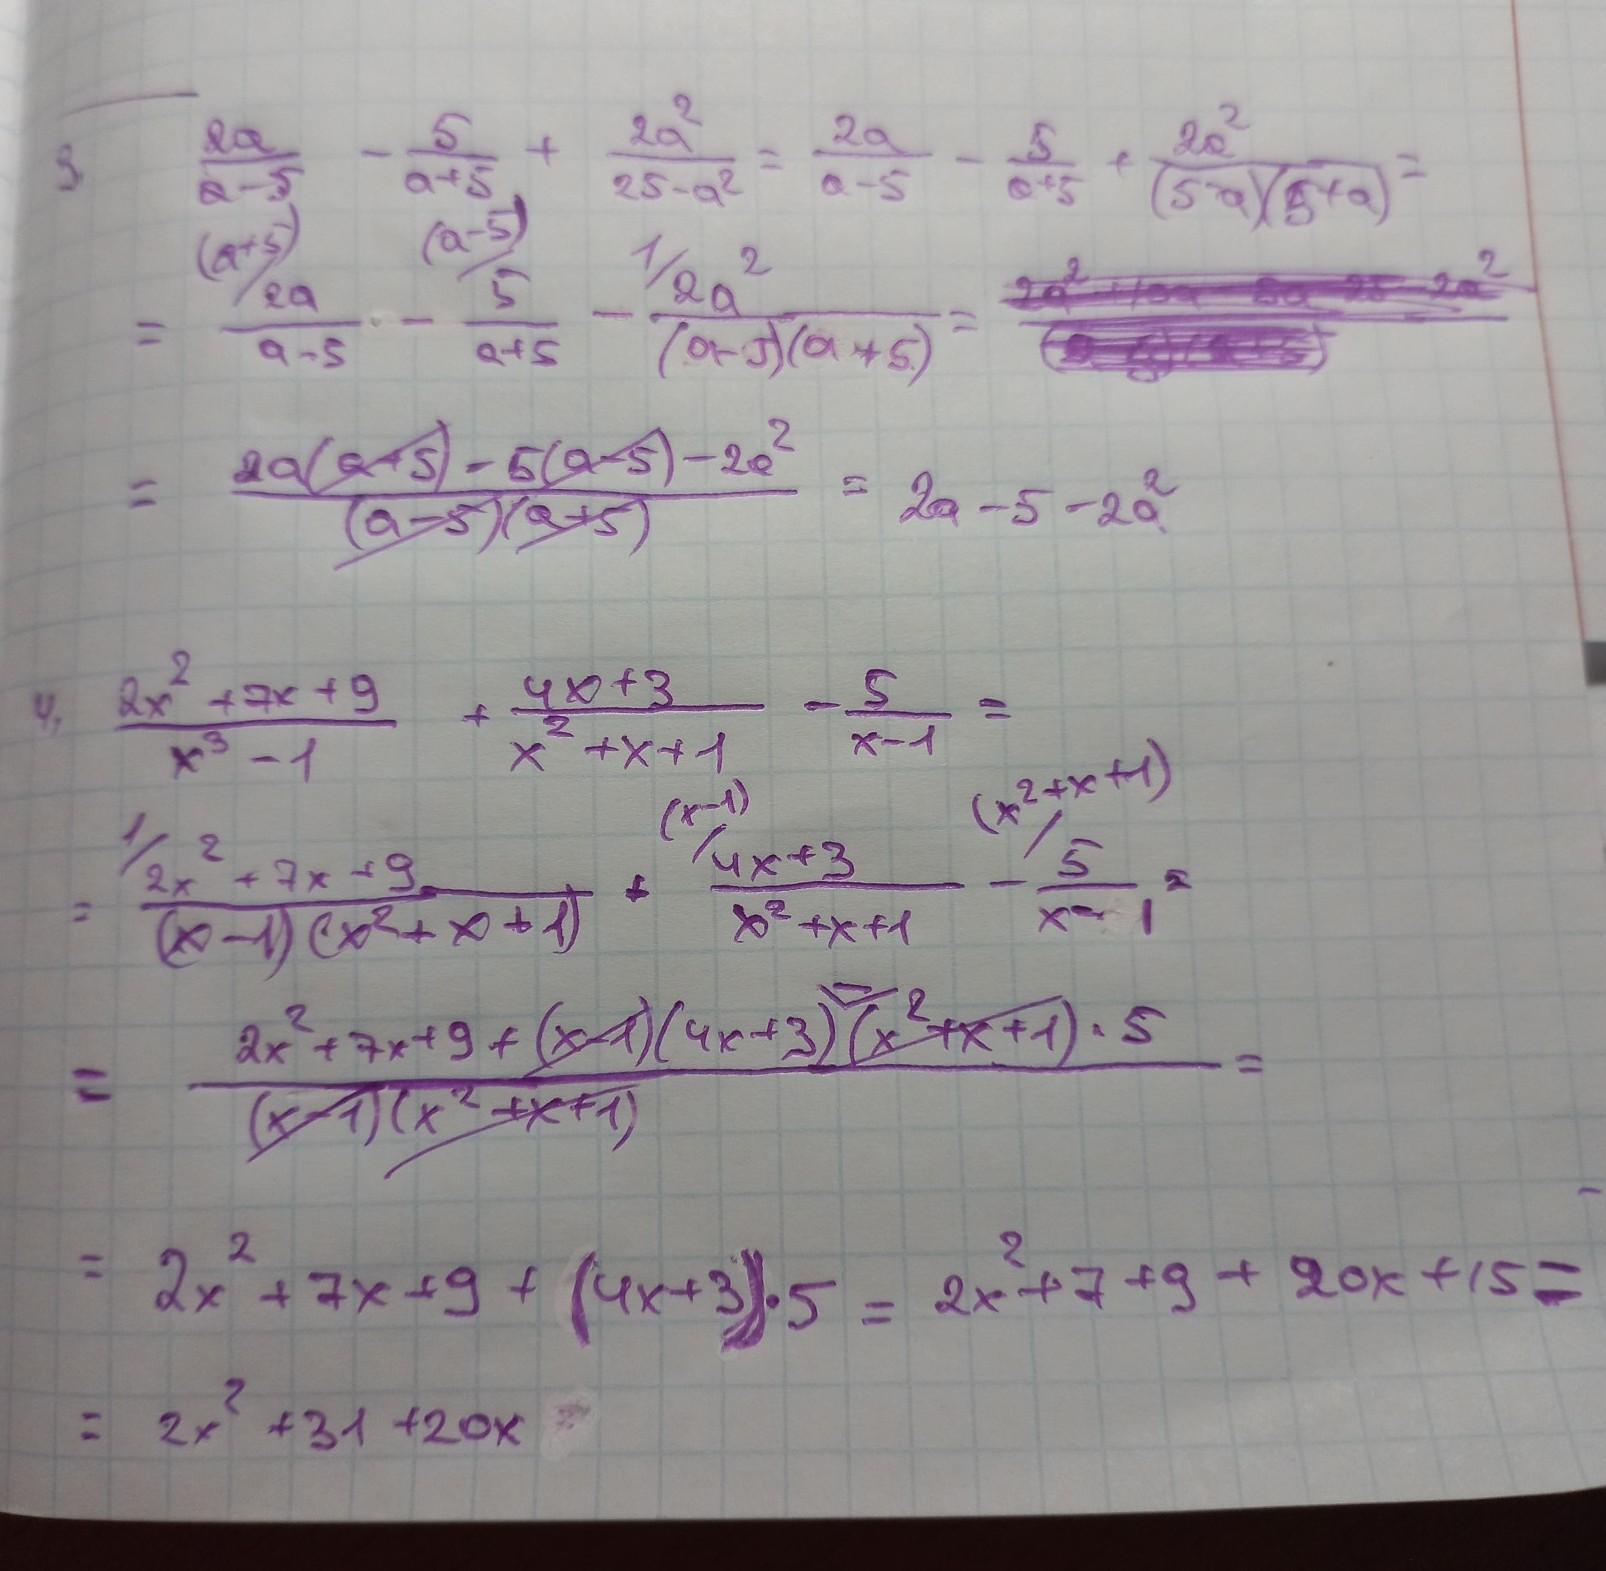 3. 2a/(a-5) - 5/(a+5) + 2a²/(25-a²) = 2a/(a-5) - 5/(a+5) + 2a²/((5-a)(5+a)) =
= (a+5)/ 2a/(a-5) - (a-5)/ 5/(a+5) - 1/ 2a²/((a-5)(a+5)) =
= (2a(a+5) - 5(a-5) - 2a²)/((a-5)(a+5)) = 2a - 5 - 2a²
4. (2x² + 7x + 9)/(x³ - 1) + (4x+3)/(x² + x + 1) - 5/(x-1) =
= 1/ (2x² + 7x + 9)/((x-1)(x² + x + 1)) + (x-1)/ (4x+3)/(x² + x + 1) - (x² + x + 1)/ 5/(x-1) =
= (2x² + 7x + 9 + (x-1)(4x+3) - (x² + x + 1) · 5)/((x-1)(x² + x + 1)) =
= 2x² + 7x + 9 + (4x+3) · 5 = 2x² + 7 + 9 + 20x + 15 =
= 2x² + 31 + 20x